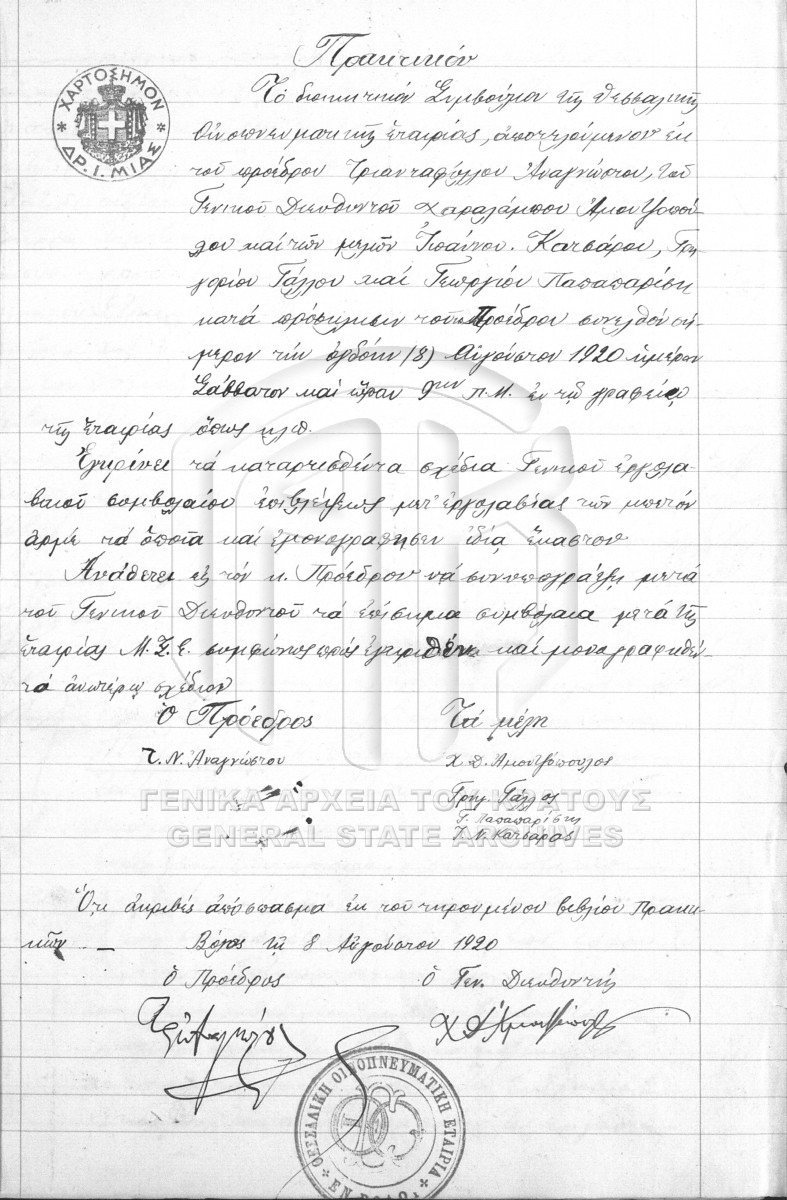 Πρακτικόν
ΧΑΡΤΟΣΗΜΟΝ
ΔΡ. Ι. ΜΙΑΣ
Τὸ διοικητικὸν Συμβούλιον τῆς Θεσσαλικῆς
Οἰνοπνευματικῆς Ἑταιρίας, ἀποτελούμενον ἐκ
τοῦ προέδρου Τριανταφύλλου Ἀναγνώστου, τοῦ
Γενικοῦ Διευθυντοῦ Χαραλάμπου Ἀμουτζοπού-
λου καὶ τῶν μελῶν Ἰωάννου. Κατσάρου, Γρη-
γορίου Γάλλου καὶ Γεωργίου Παπαπαρίση
κατὰ πρόσκλησιν τοῦ Προέδρου συνελθὸν σή-
μερον τὴν ὀγδόην (8) Αὐγούστου 1920 ἡμέραν
Σάββατον καὶ ὥραν 9ην π.μ. ἐν τῷ γραφείῳ
τῆς Ἑταιρίας ὅπως κλπ.
Ἐγκρίνει τὰ καταρτισθέντα σχέδια Γενικοῦ ἐργολα-
βικοῦ συμβολαίου ἐπιβλέψεως μετ' ἐργολαβίας τῶν μπετὸν
ἀρμὲ τὰ ὁποῖα καὶ ἐμονογράφησεν ἰδίᾳ ἕκαστον
Ἀναθέτει εἰς τὸν κ. Πρόεδρον νὰ συνυπογράψῃ μετὰ
τοῦ Γενικοῦ Διευθυντοῦ τὰ ἐπίσημα συμβόλαια μετὰ τῆς
Ἑταιρίας Μ.Σ.Ε. συμφώνως πρὸς ἐγκριθέν καὶ μονογραφηθέν-
τὰ ἀνωτέρω σχέδιον
Ὁ Πρόεδρος Τὰ μέλη
Τ. Ν. Ἀναγνώστου Χ. Δ. Ἀμουτζόπουλος
Γρηγ. Γάλλος
Γ. Παπαπαρίσης
Ι. Ν. Κατσάρος
ΓΕΝΙΚΑ ΑΡΧΕΙΑ ΤΟΥ ΚΡΑΤΟΥΣ
GENERAL STATE ARCHIVES
Ὅτι ἀκριβὲς ἀπόσπασμα ἐκ τοῦ τηρουμένου βιβλίου Πρακτι-
κῶν. —
Βόλος τῇ 8 Αὐγούστου 1920
ὁ Πρόεδρος ὁ Γεν. Διευθυντής
ΘΕΣΣΑΛΙΚΗ ΟΙΝΟΠΝΕΥΜΑΤΙΚΗ ΕΤΑΙΡΙΑ
ΕΝ ΒΟΛΩ